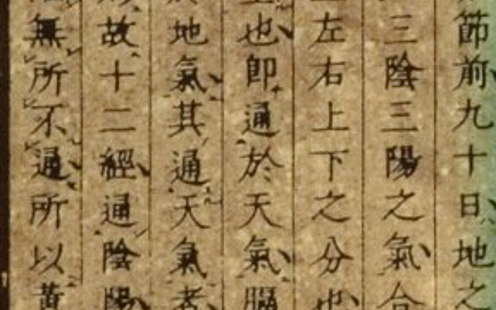 節前九十日地之
三陰三陽之氣合
左右上下之分也
也即通於天氣膈
地氣其通天氣者
故十二經通陰陽
無所不通所以黃